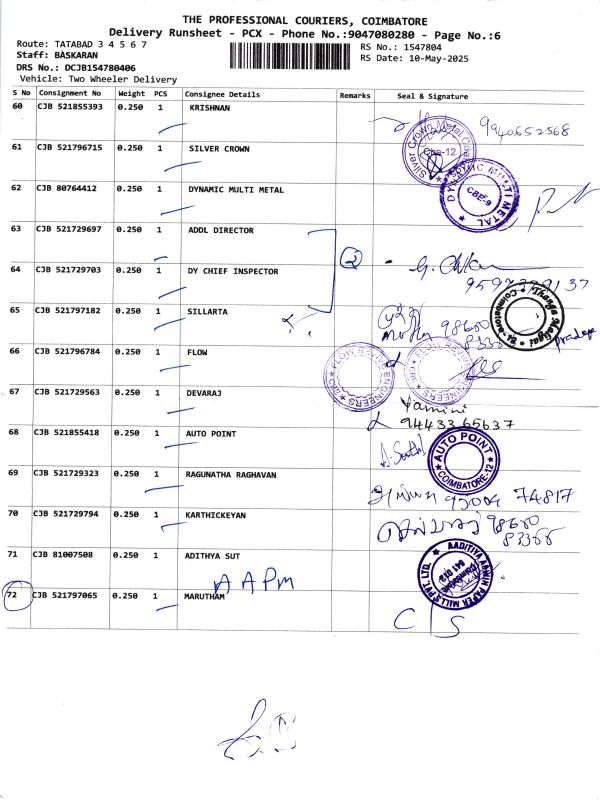 THE PROFESSIONAL COURIERS, COIMBATORE
Delivery Runsheet - PCX - Phone No.:9047080280 - Page No.:6
Route: TATABAD 3 4 5 6 7
RS No.: 1547804
Staff: BASKARAN
RS Date: 10-May-2025
DRS No.: DCJB154780406
Vehicle: Two Wheeler Delivery
S No Consignment No Weight PCS Consignee Details Remarks Seal & Signature
60 CJB 521855393 0.250 1 KRISHNAN 9940652568
61 CJB 521796715 0.250 1 SILVER CROWN
Silver Crown Metal Cbe-12
62 CJB 80764412 0.250 1 DYNAMIC MULTI METAL
DYNAMIC MULTI METAL CBE-9
63 CJB 521729697 0.250 1 ADDL DIRECTOR
2
64 CJB 521729703 0.250 1 DY CHIEF INSPECTOR
65 CJB 521797182 0.250 1 SILLARTA
Coimbatore
66 CJB 521796784 0.250 1 FLOW
FLOW ENGINEERS
67 CJB 521729563 0.250 1 DEVARAJ
Yamini
94433 65637
68 CJB 521855418 0.250 1 AUTO POINT
AUTO POINT COIMBATORE-12
69 CJB 521729323 0.250 1 RAGUNATHA RAGHAVAN
74817
70 CJB 521729794 0.250 1 KARTHICKEYAN
98600
83366
71 CJB 81007508 0.250 1 ADITHYA SUT
AADITIYA ADMIN PAPER MILLS PVT. LTD. Coimbatore 641 012
AAPM
72 CJB 521797065 0.250 1 MARUTHAM
C/S